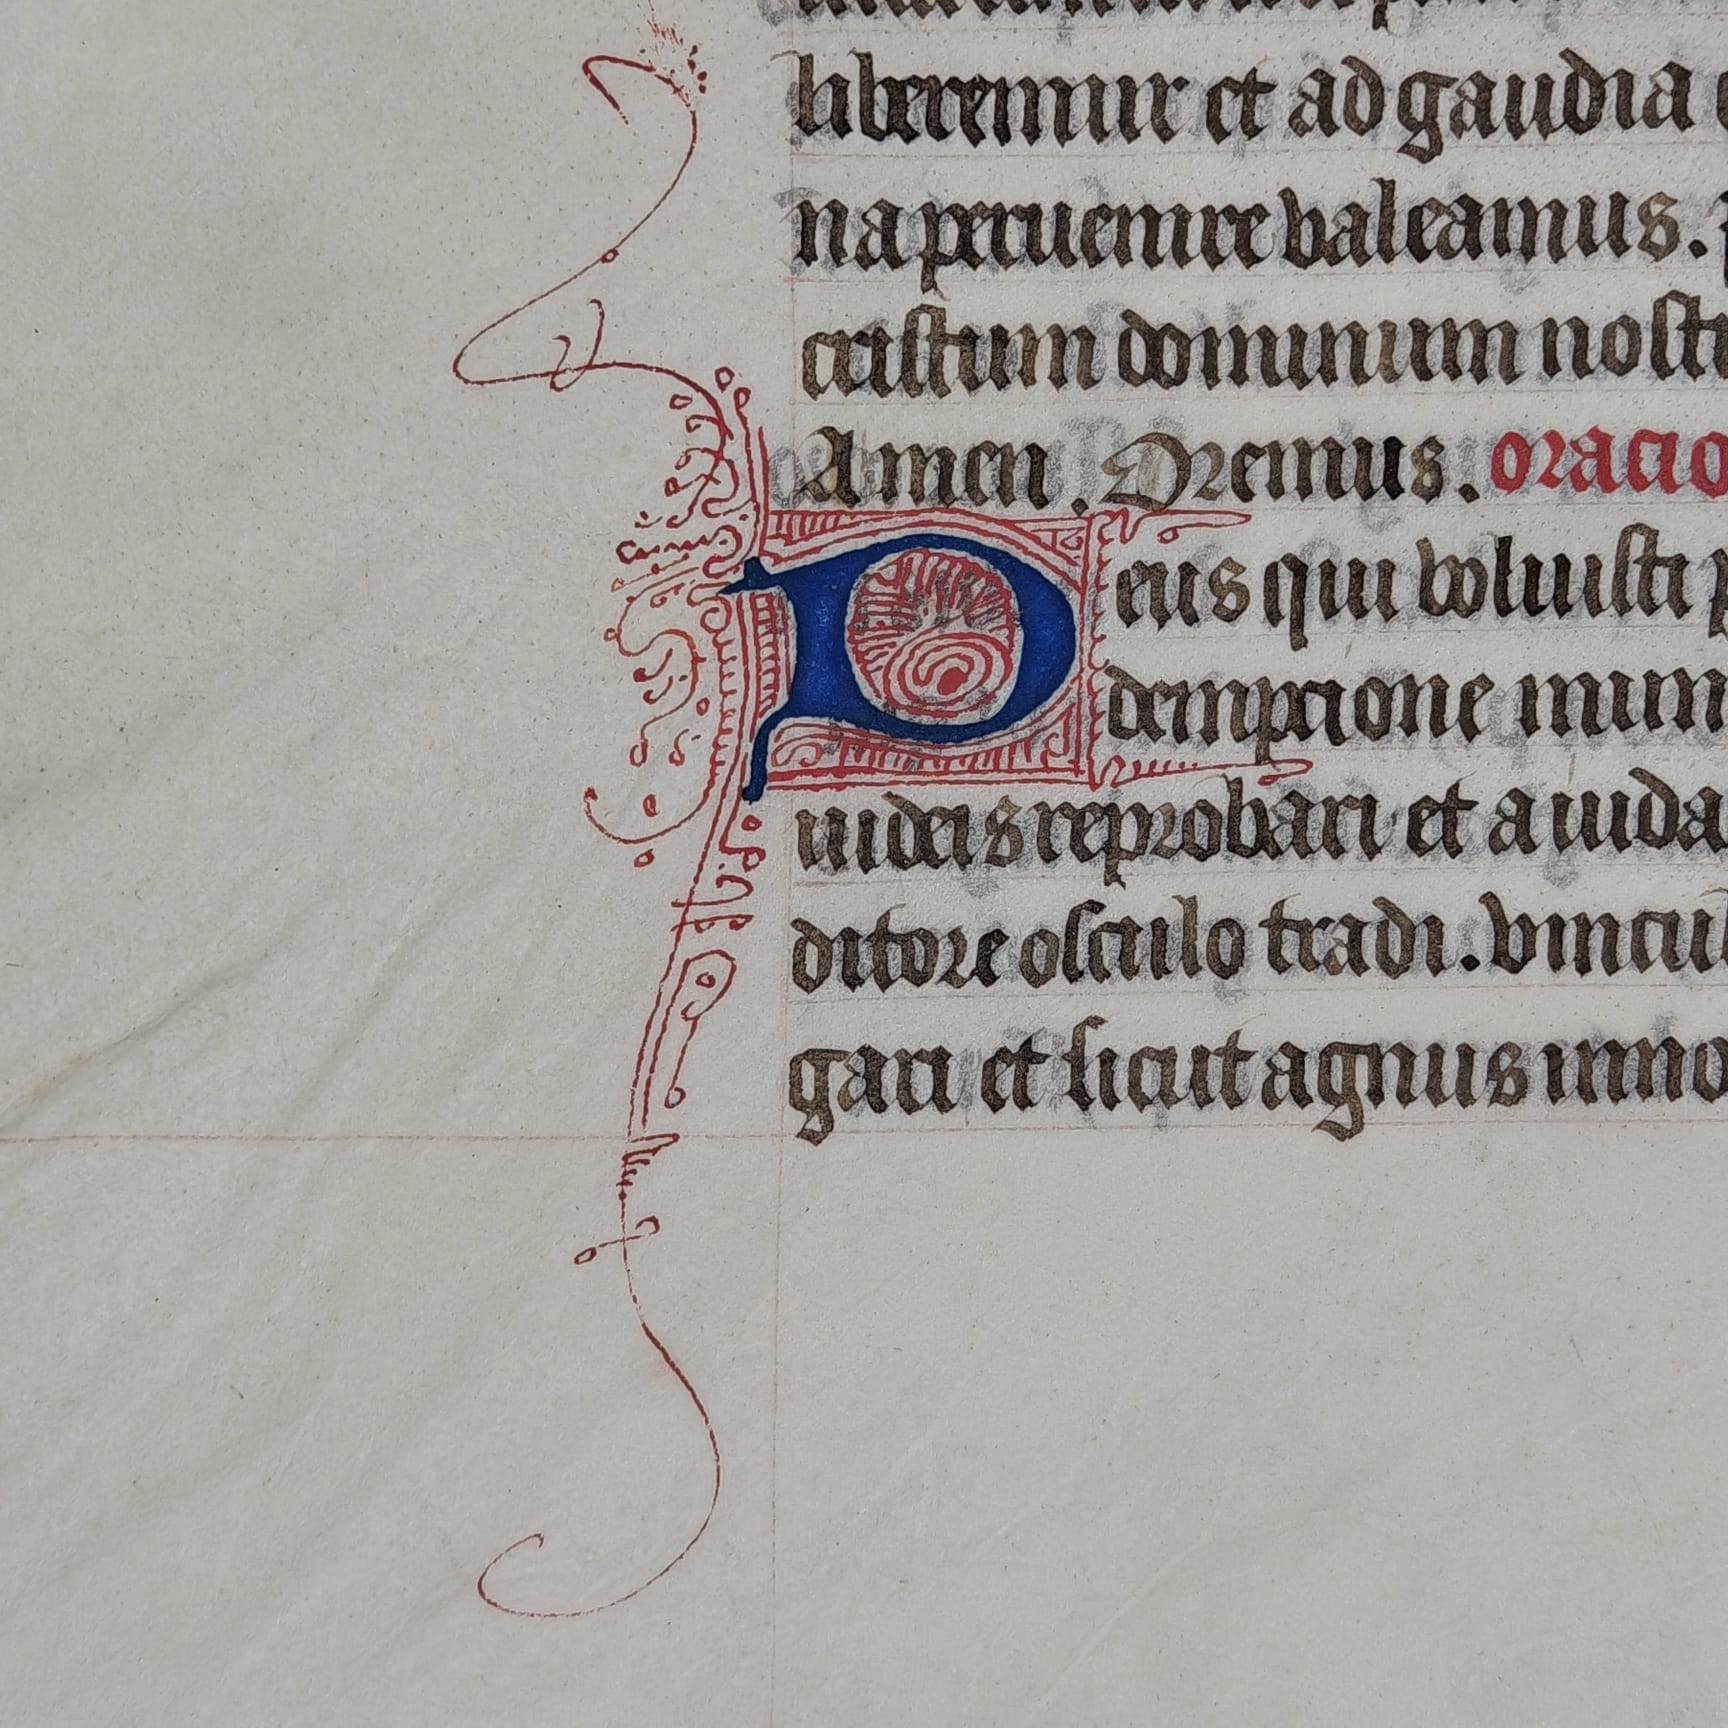 liberemur et ad gaudia
na peruenire valeamus.
cristum dominum nostr
Amen. Oremus. oracio
Deus qui voluisti p
dempcione mun
iudeis reprobari et a iuda
ditore osculo tradi. vincul
gari et sicut agnus inno